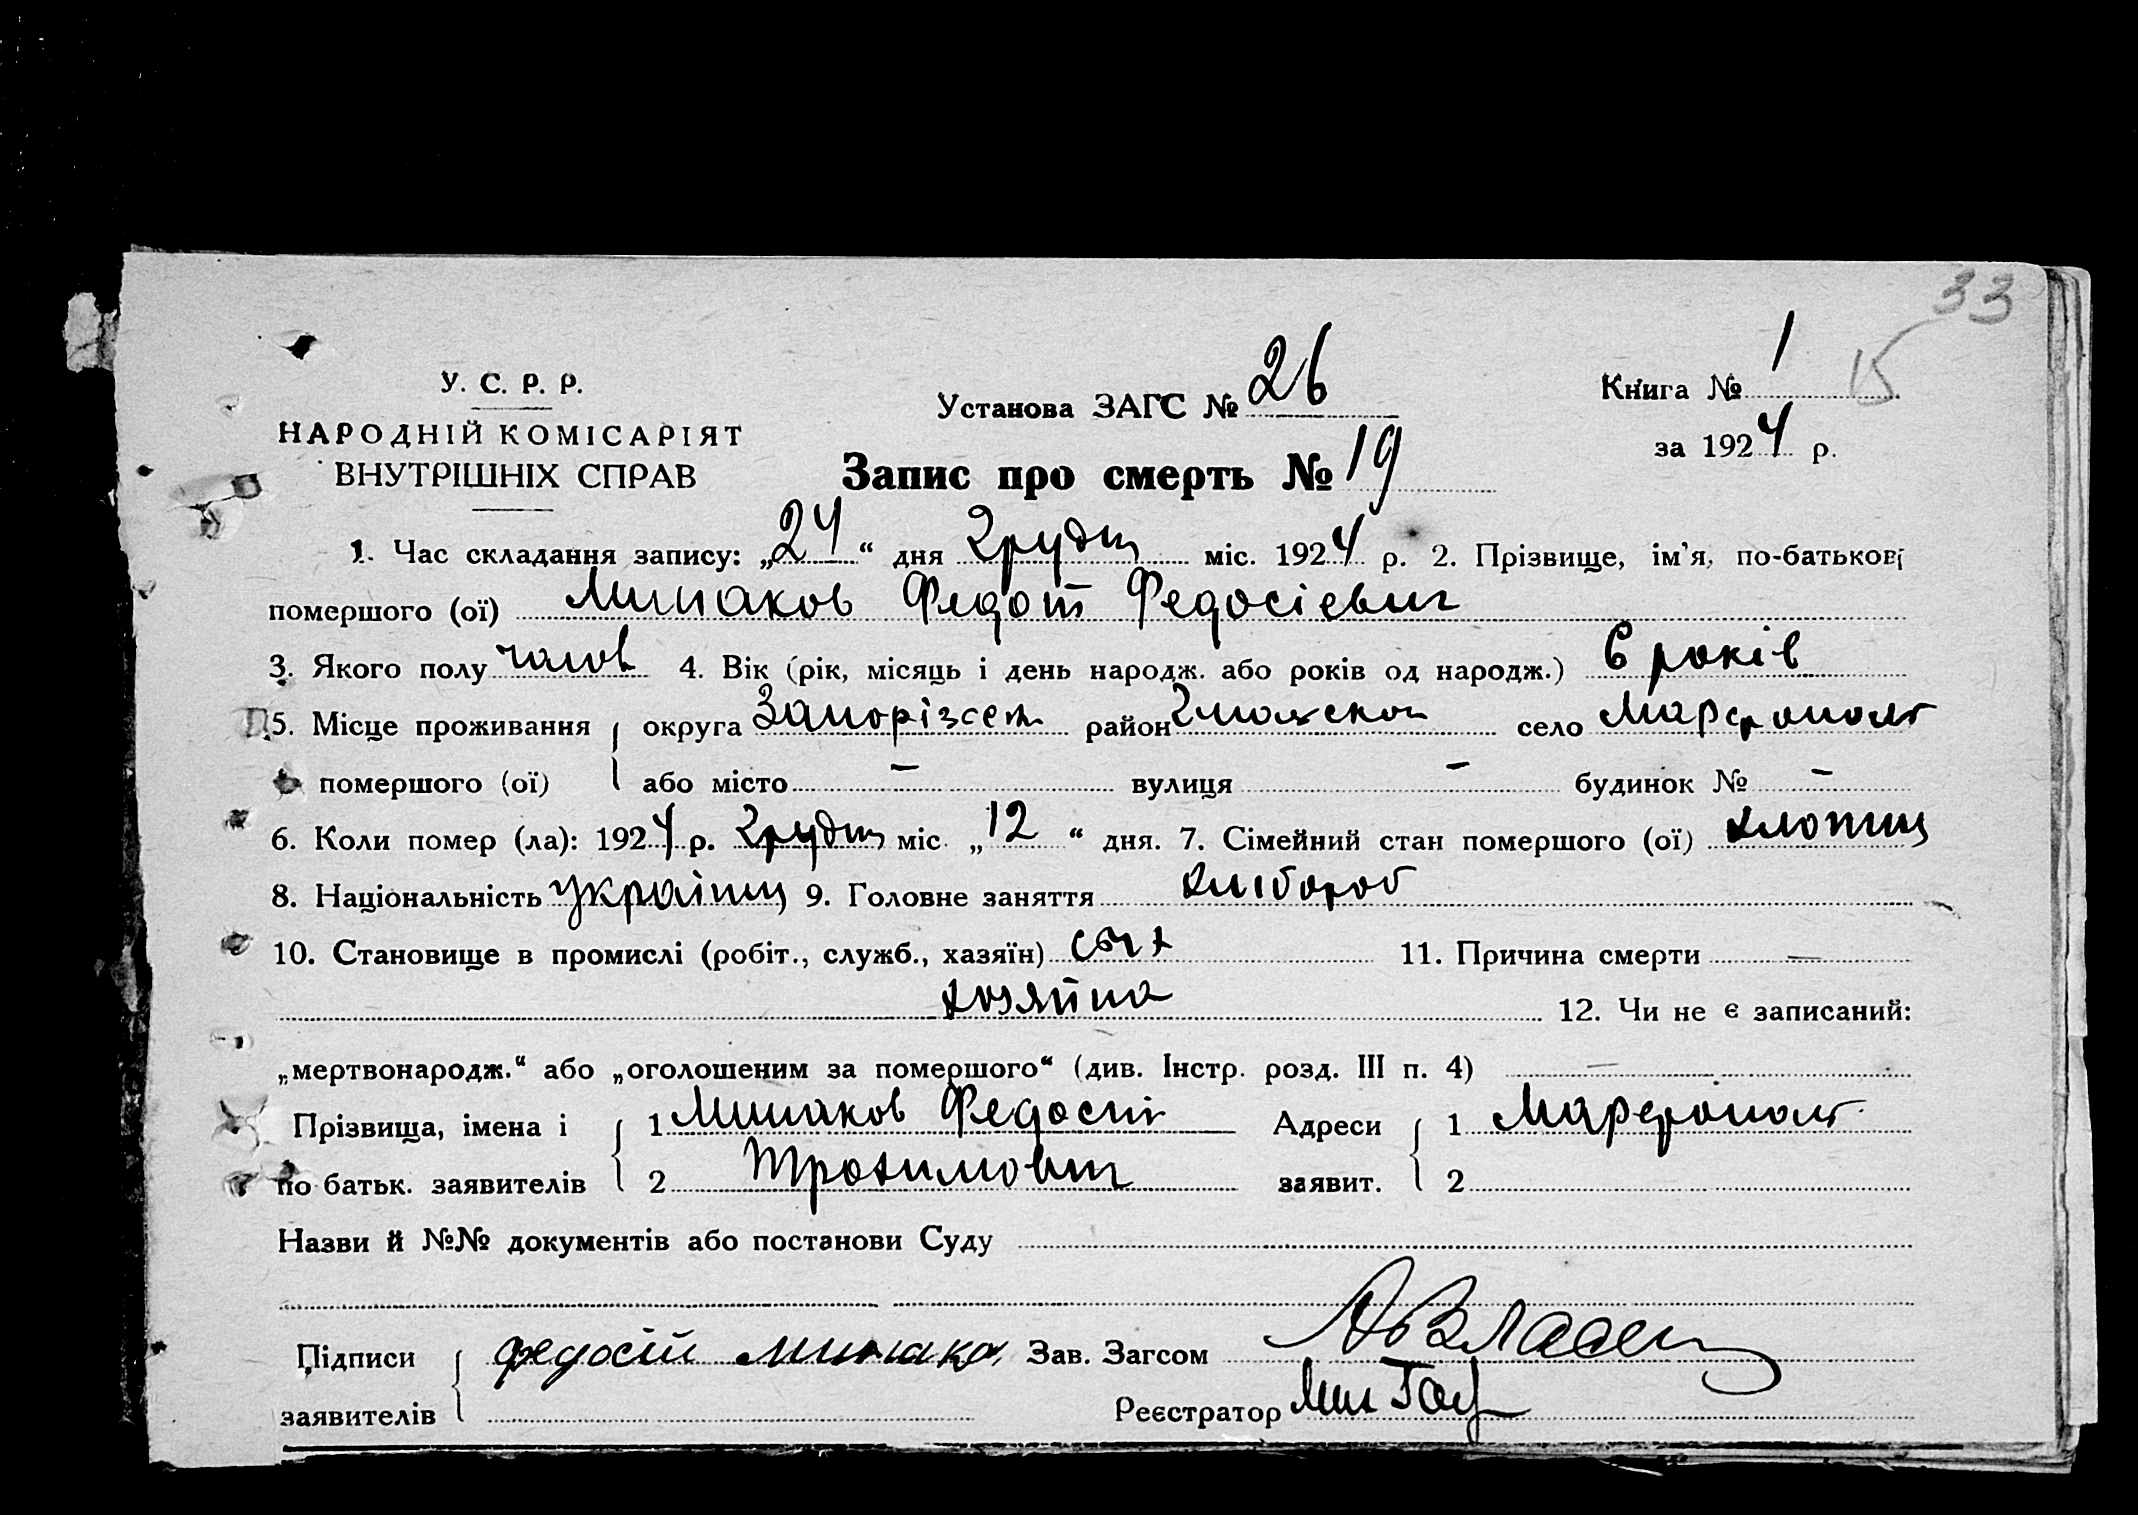 33
У. С. Р. Р.
НАРОДНІЙ КОМІСАРІЯТ
ВНУТРІШНІХ СПРАВ
Установа ЗАГС № 26
Книга № 1 15
за 1924 р.
Запис про смерть № 19
1. Час складання запису: „24“ дня Грудн міс. 1924 р. 2. Прізвище, ім'я, по-батькові
помершого (ої) Минаков Федот Федосієвич
3. Якого полу чолов 4. Вік (рік, місяць і день народж. або років од народж.) 6 років
5. Місце проживання округа район село Марфополь
помершого (ої) або місто — вулиця — будинок № —
6. Коли помер (ла): 1924 р. Грудн міс. „12“ дня. 7. Сімейний стан помершого (ої) хлопець
8. Національність українц 9. Головне заняття хлібороб
10. Становище в промислі (робіт., служб., хазяїн) 11. Причина смерти —
хозяйна 12. Чи не є записаний:
„мертвонародж.“ або „оголошеним за помершого“ (див. Інстр. розд. III п. 4) —
Прізвища, імена і 1 Минаков Федосій Адреси 1 Марфополь
по батьк. заявителів 2 Трохимович заявит. 2
Назви й №№ документів або постанови Суду
Підписи федосій минако Зав. Загсом
заявителів Реєстратор